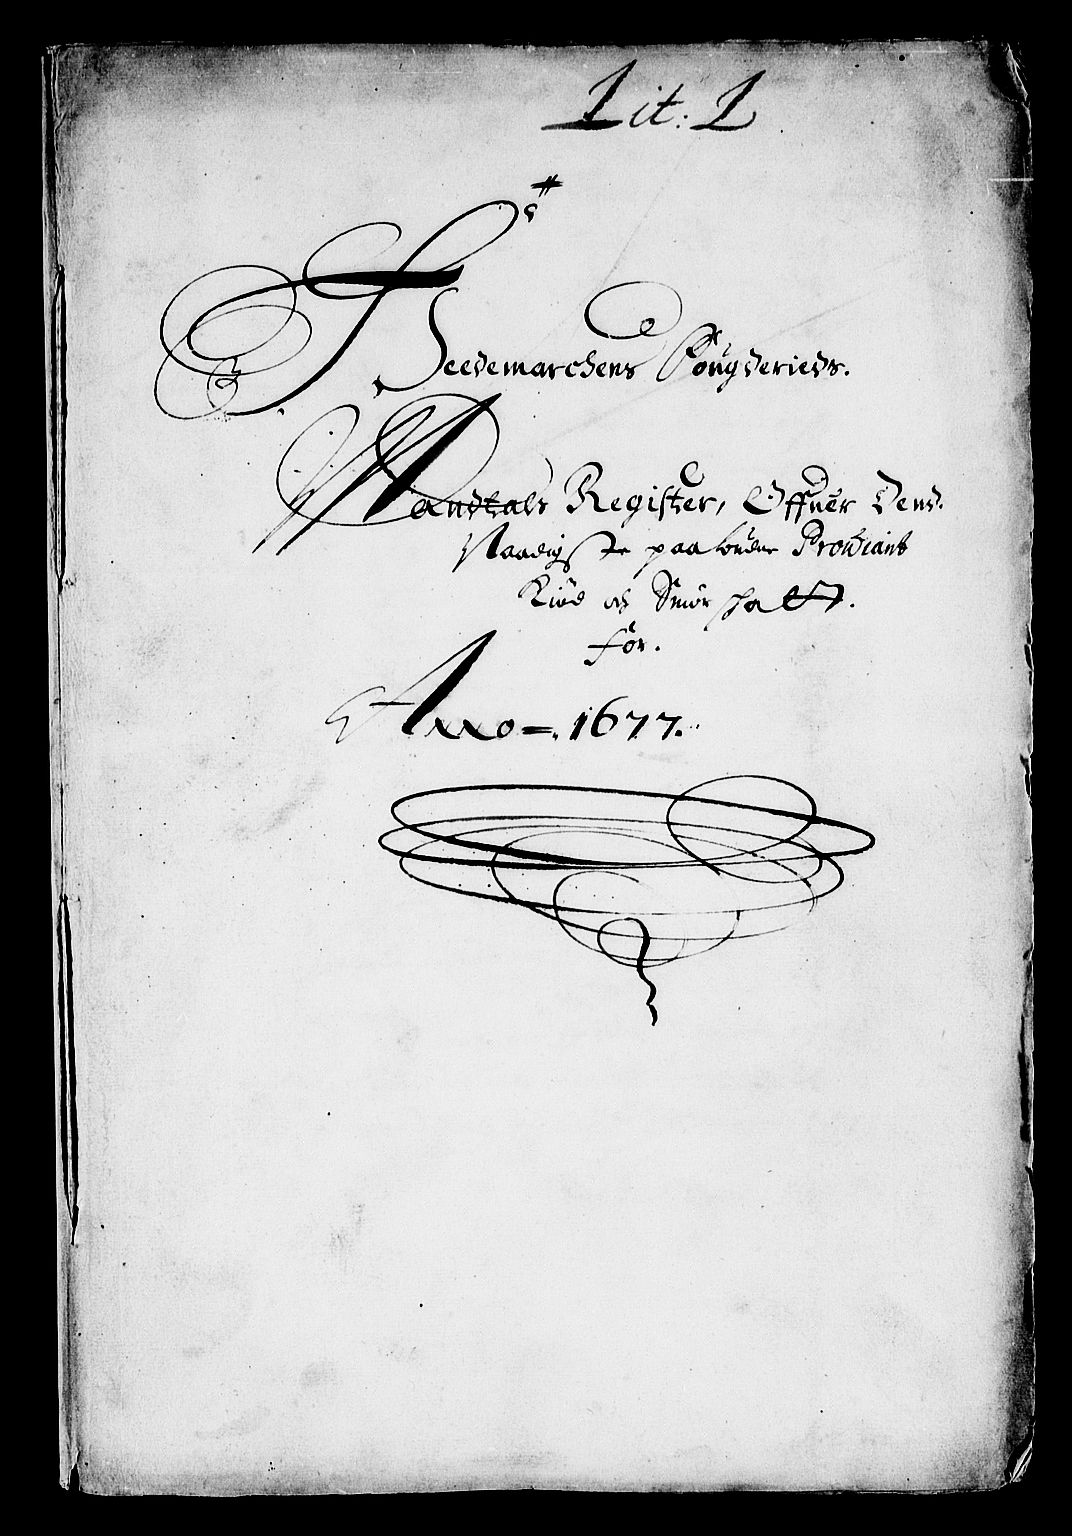 Lit: L
Heedemarchens Fougderieds.
Mandtals Register, Offuer dend
Naadigste paabudne Prowiant
Kiød och Smør schatt.
for.
Anno 1677.